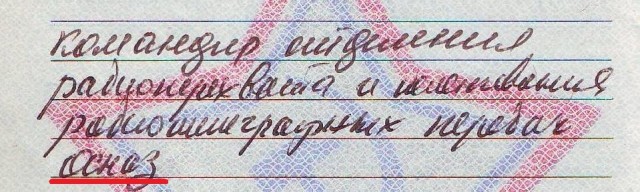 командир отделения
радиоперехвата и пеленгования
радиотелеграфных передач
осназ